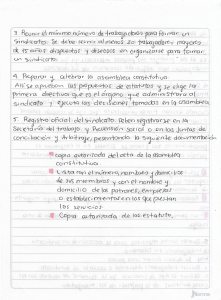 3 Reunir el número mínimo de trabajadores para formar un
sindicato. Se debe reunir al menos 20 trabajadores mayores
de 15 años dispuestos y deseosos en organizarse para formar
un sindicato.
4 Preparar y celebrar la asamblea constitutiva
Ahí se aprueban las propuestas de estatutos y se elige la
primera directiva que es el órgano que administrará al
sindicato y ejecuta las decisiones tomadas en la asamblea.
5 Registro oficial del sindicato. Deben registrarse en la
Secretaría del trabajo y Previsión Social o en las Juntas de
conciliación y Arbitraje, presentando la siguiente documentación
copia autorizada del acta de la asamblea
constitutiva.
Lista con el número, nombre y domicilios
de sus miembros y con el nombre y
domicilio de los patrones, empresas
o establecimientos en los que prestan
los servicios.
Copia autorizada de los estatutos.